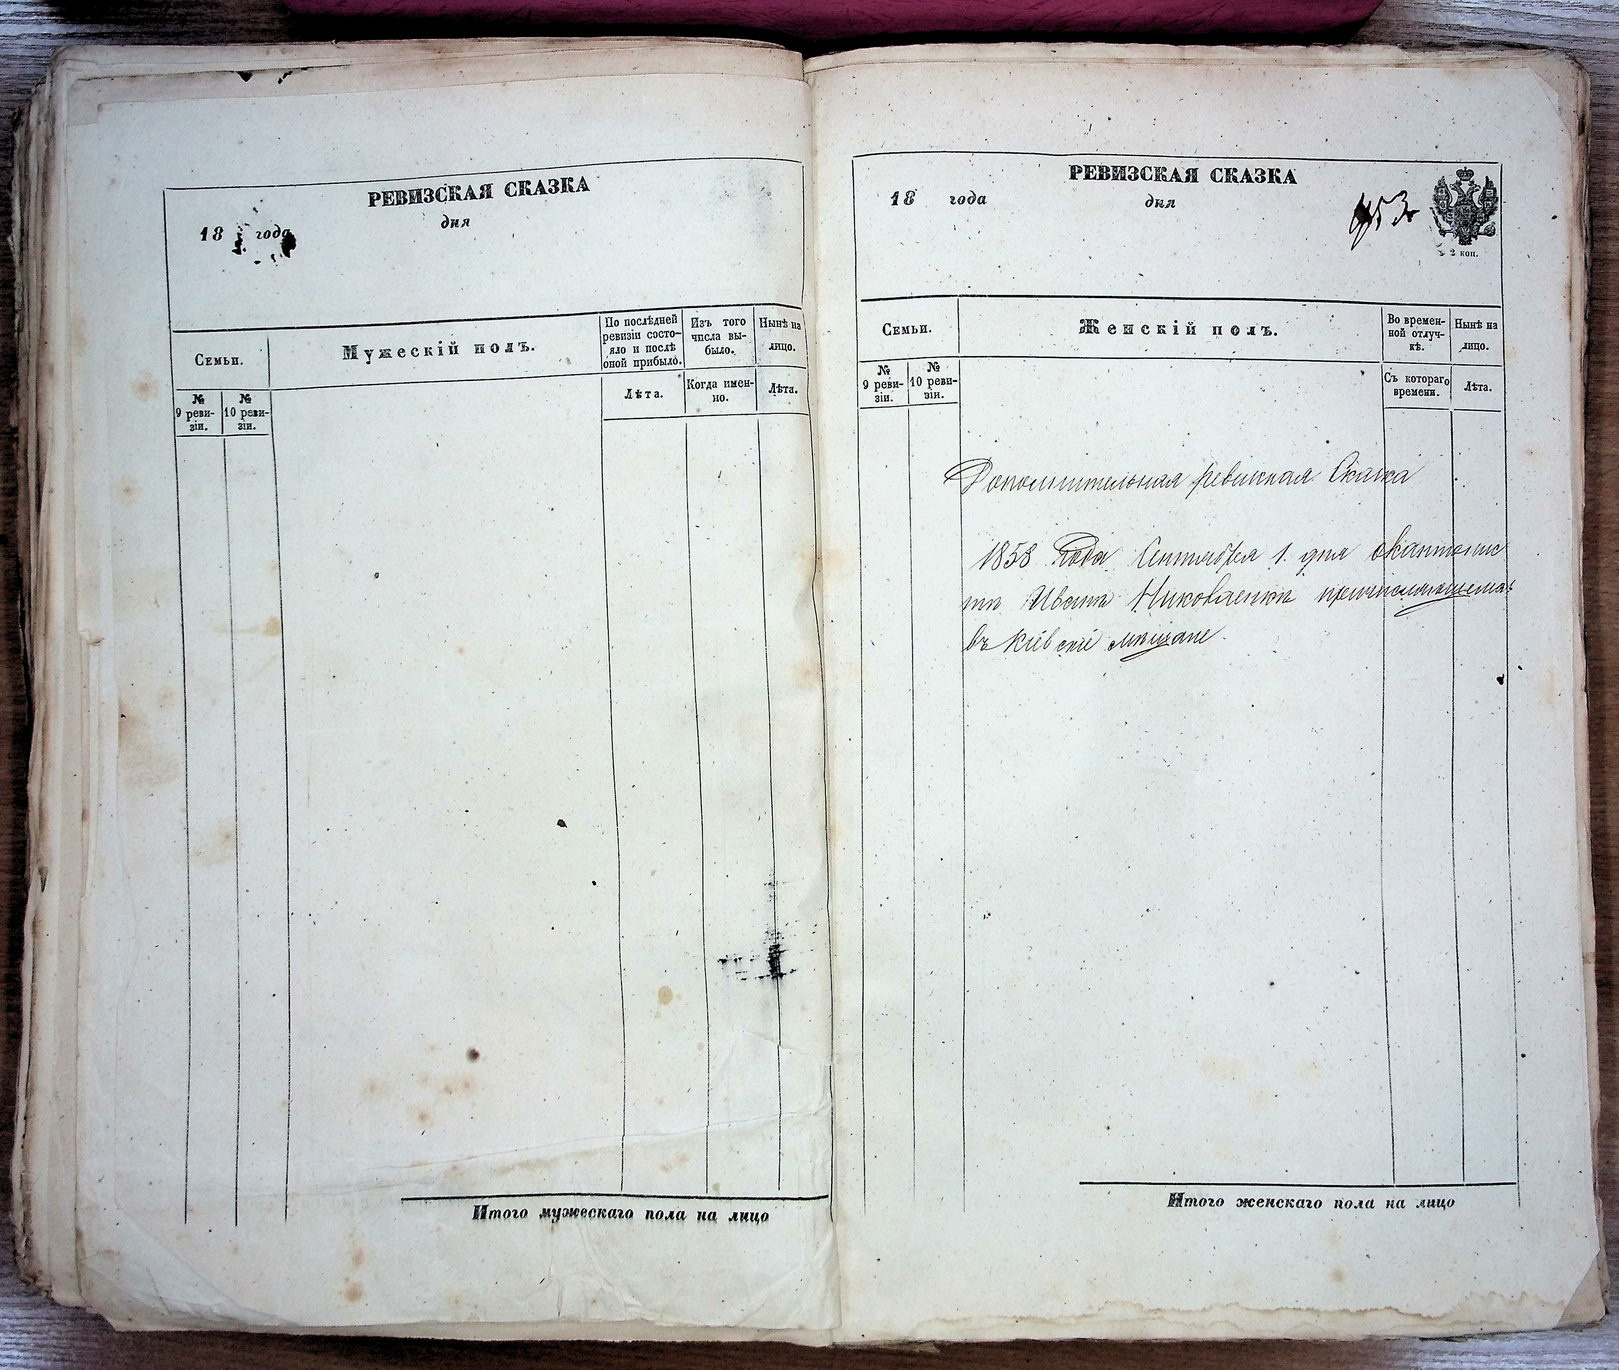 РЕВИЗСКАЯ СКАЗКА
18 года дня
Семьи.
Мужескій полъ.
По послѣдней ревизіи состо-
яло и послѣ
оной прибыло.
Изъ того
числа вы-
было.
Нынѣ на
лицо.
№
9 реви-
зіи.
№
10 реви-
зіи.
Лѣта.
Когда имен-
но.
Лѣта.
Итого мужескаго пола на лицо
РЕВИЗСКАЯ СКАЗКА
18 года дня
953
2 коп.
Семьи.
Женскій полъ.
Во времен-
ной отлуч-
кѣ.
Нынѣ на
лицо.
№
9 реви-
зіи.
№
10 реви-
зіи.
Съ котораго
времени.
Лѣта.
Дополнительная ревизкая Сказка
1858 Года Сентября 1 дня
Ивана Николаенка
въ Кіевскіе мѣщане.
Итого женскаго пола на лицо